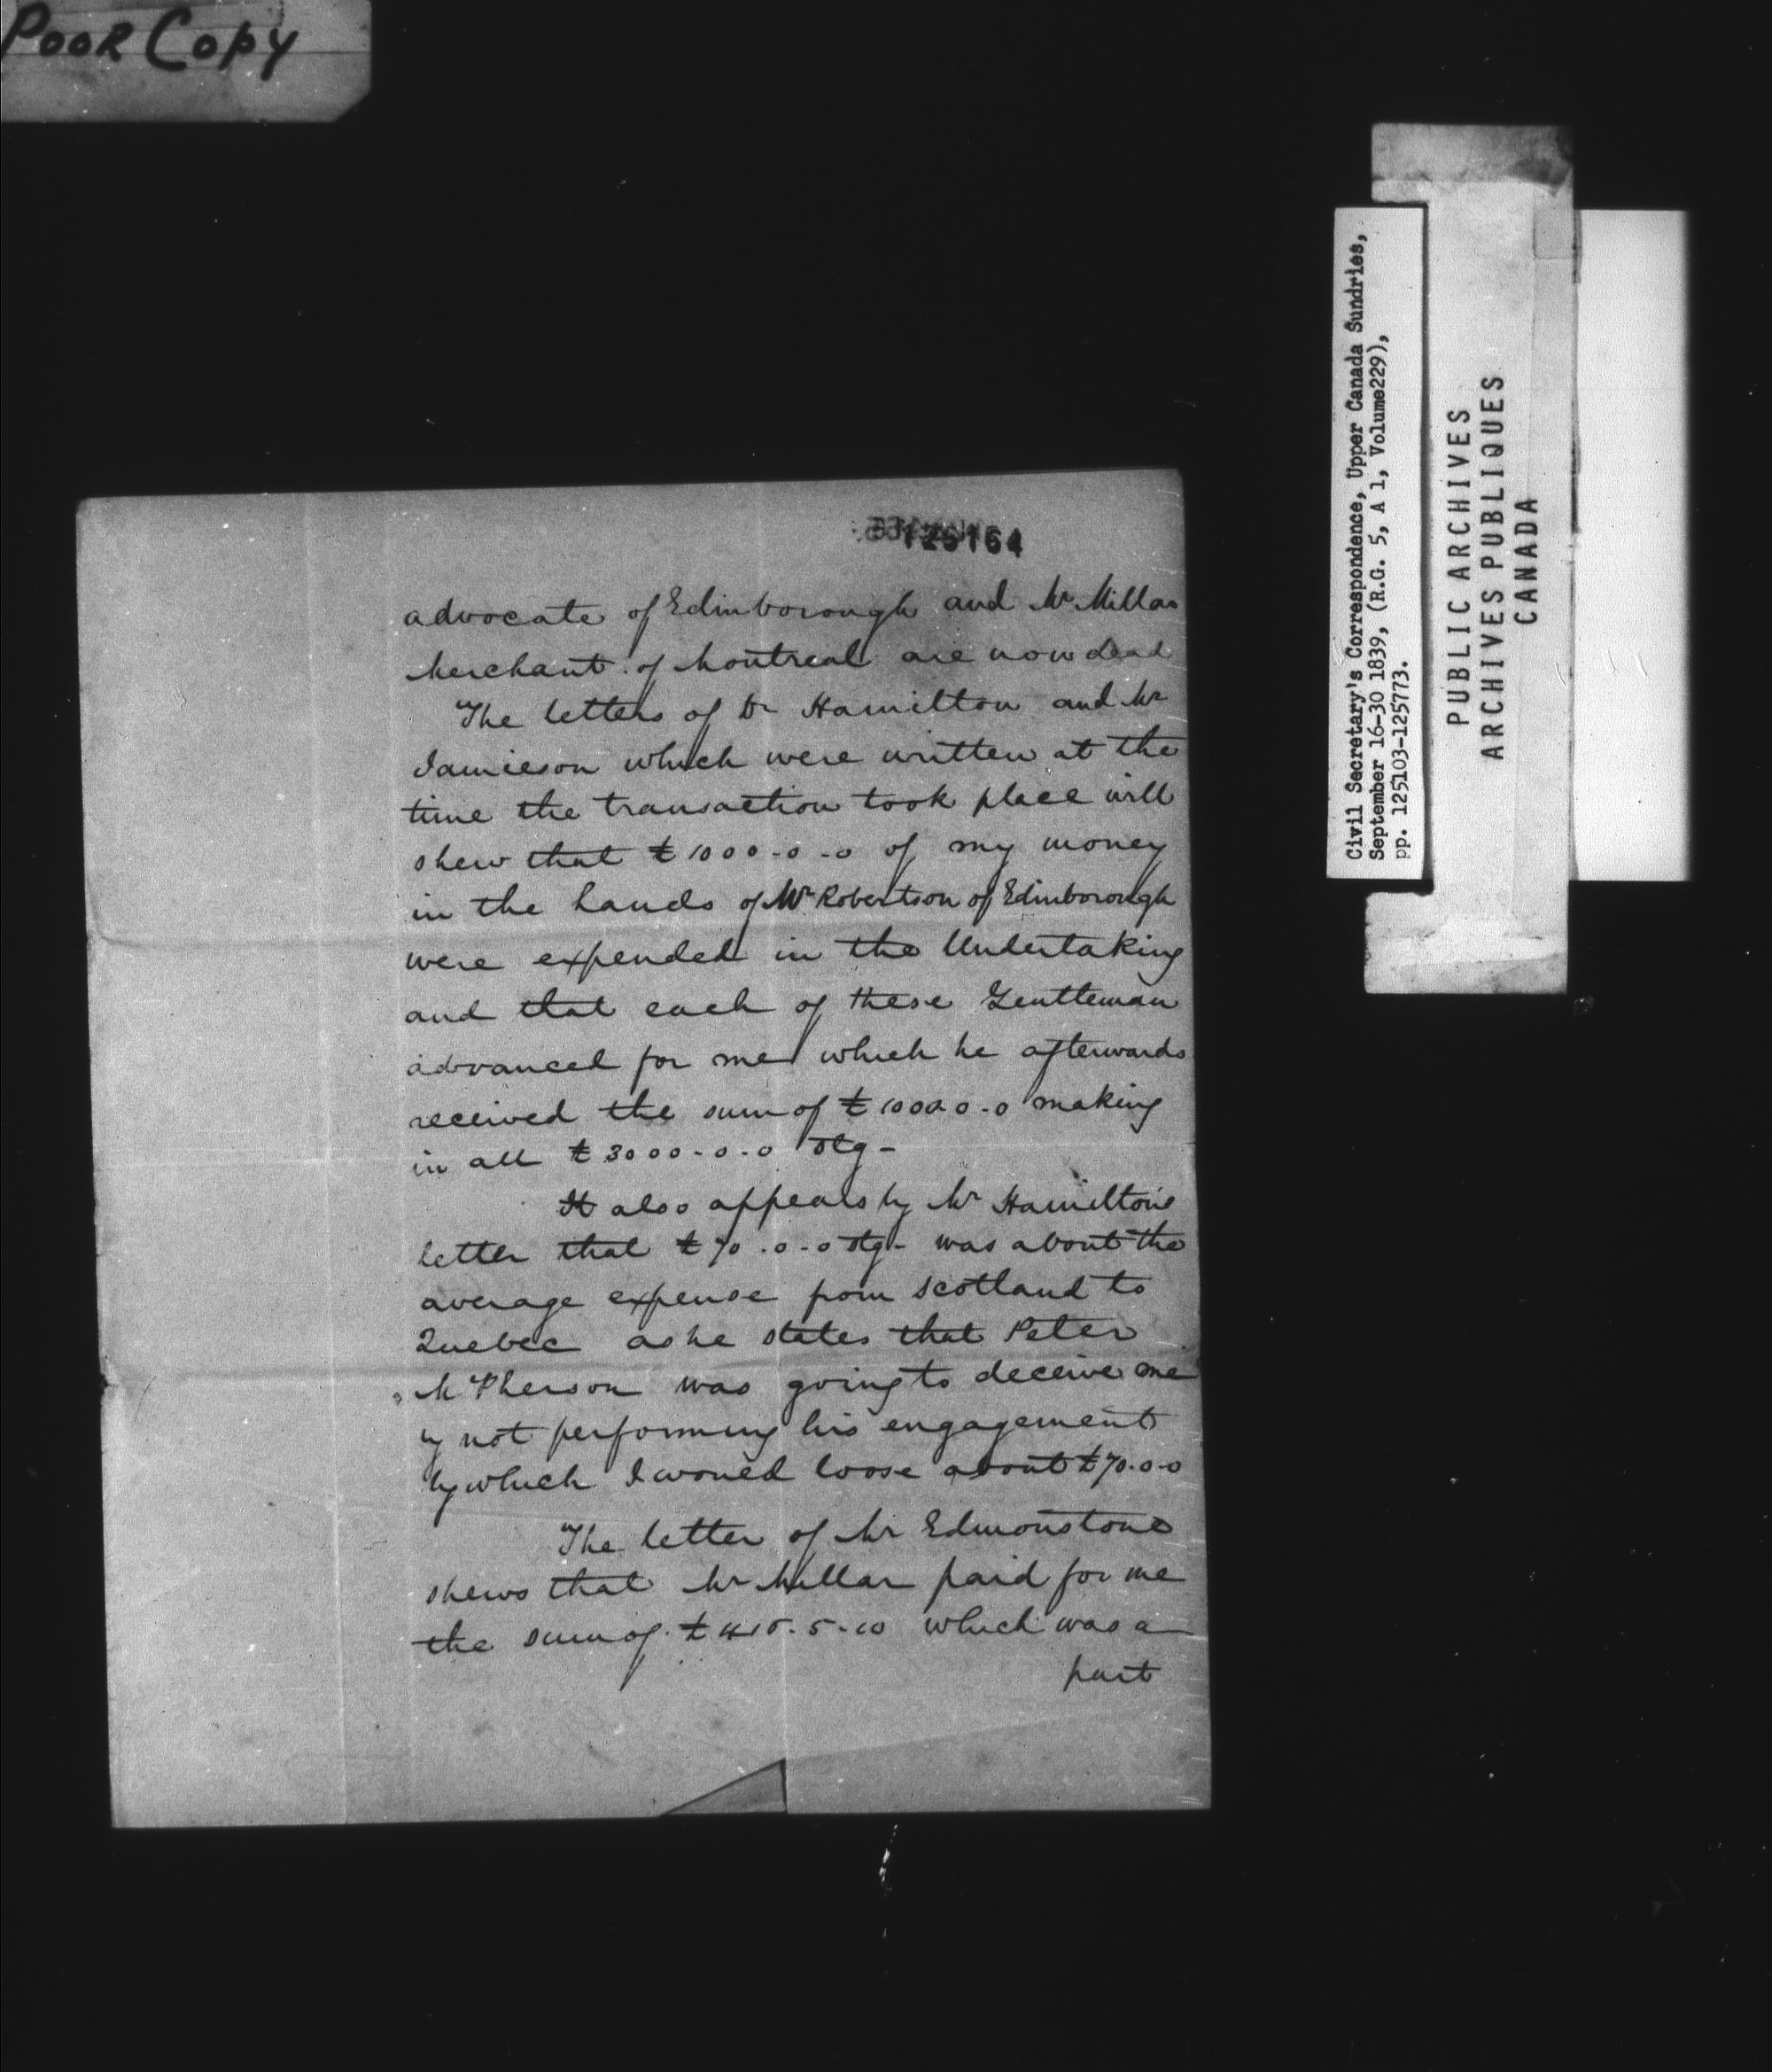 Poor Copy
125164
advocate of Edinborough and Mr Millar
Merchant of Montreal are now dead
The letters of Dr Hamilton and Mr
Jamieson which were written at the
time the transaction took place will
shew that £1000-0-0 of my money
in the hands of Mr Robertson of Edinborough
were expended in the Undertaking
and that each of these Gentleman
advanced for me which he afterwards
received the sum of £1000.0-0 making
in all £3000-0-0 Stg-
It also appears by Mr Hamiltons
letter that £70.0-0 Stg- was about the
average expense from Scotland to
Quebec as he states that Peter
McPherson was going to deceive me
by not performing his engagement
by which I would loose about £70.0-0
The letter of Mr Edmonstone
shews that Mr Millar paid for me
the sum of £ 5-10 which was a
part
Civil Secretary's Correspondence, Upper Canada Sundries,
September 16-30 1839, (R.G. 5, A 1, Volume229),
pp. 125103-125773.
PUBLIC ARCHIVES
ARCHIVES PUBLIQUES
CANADA